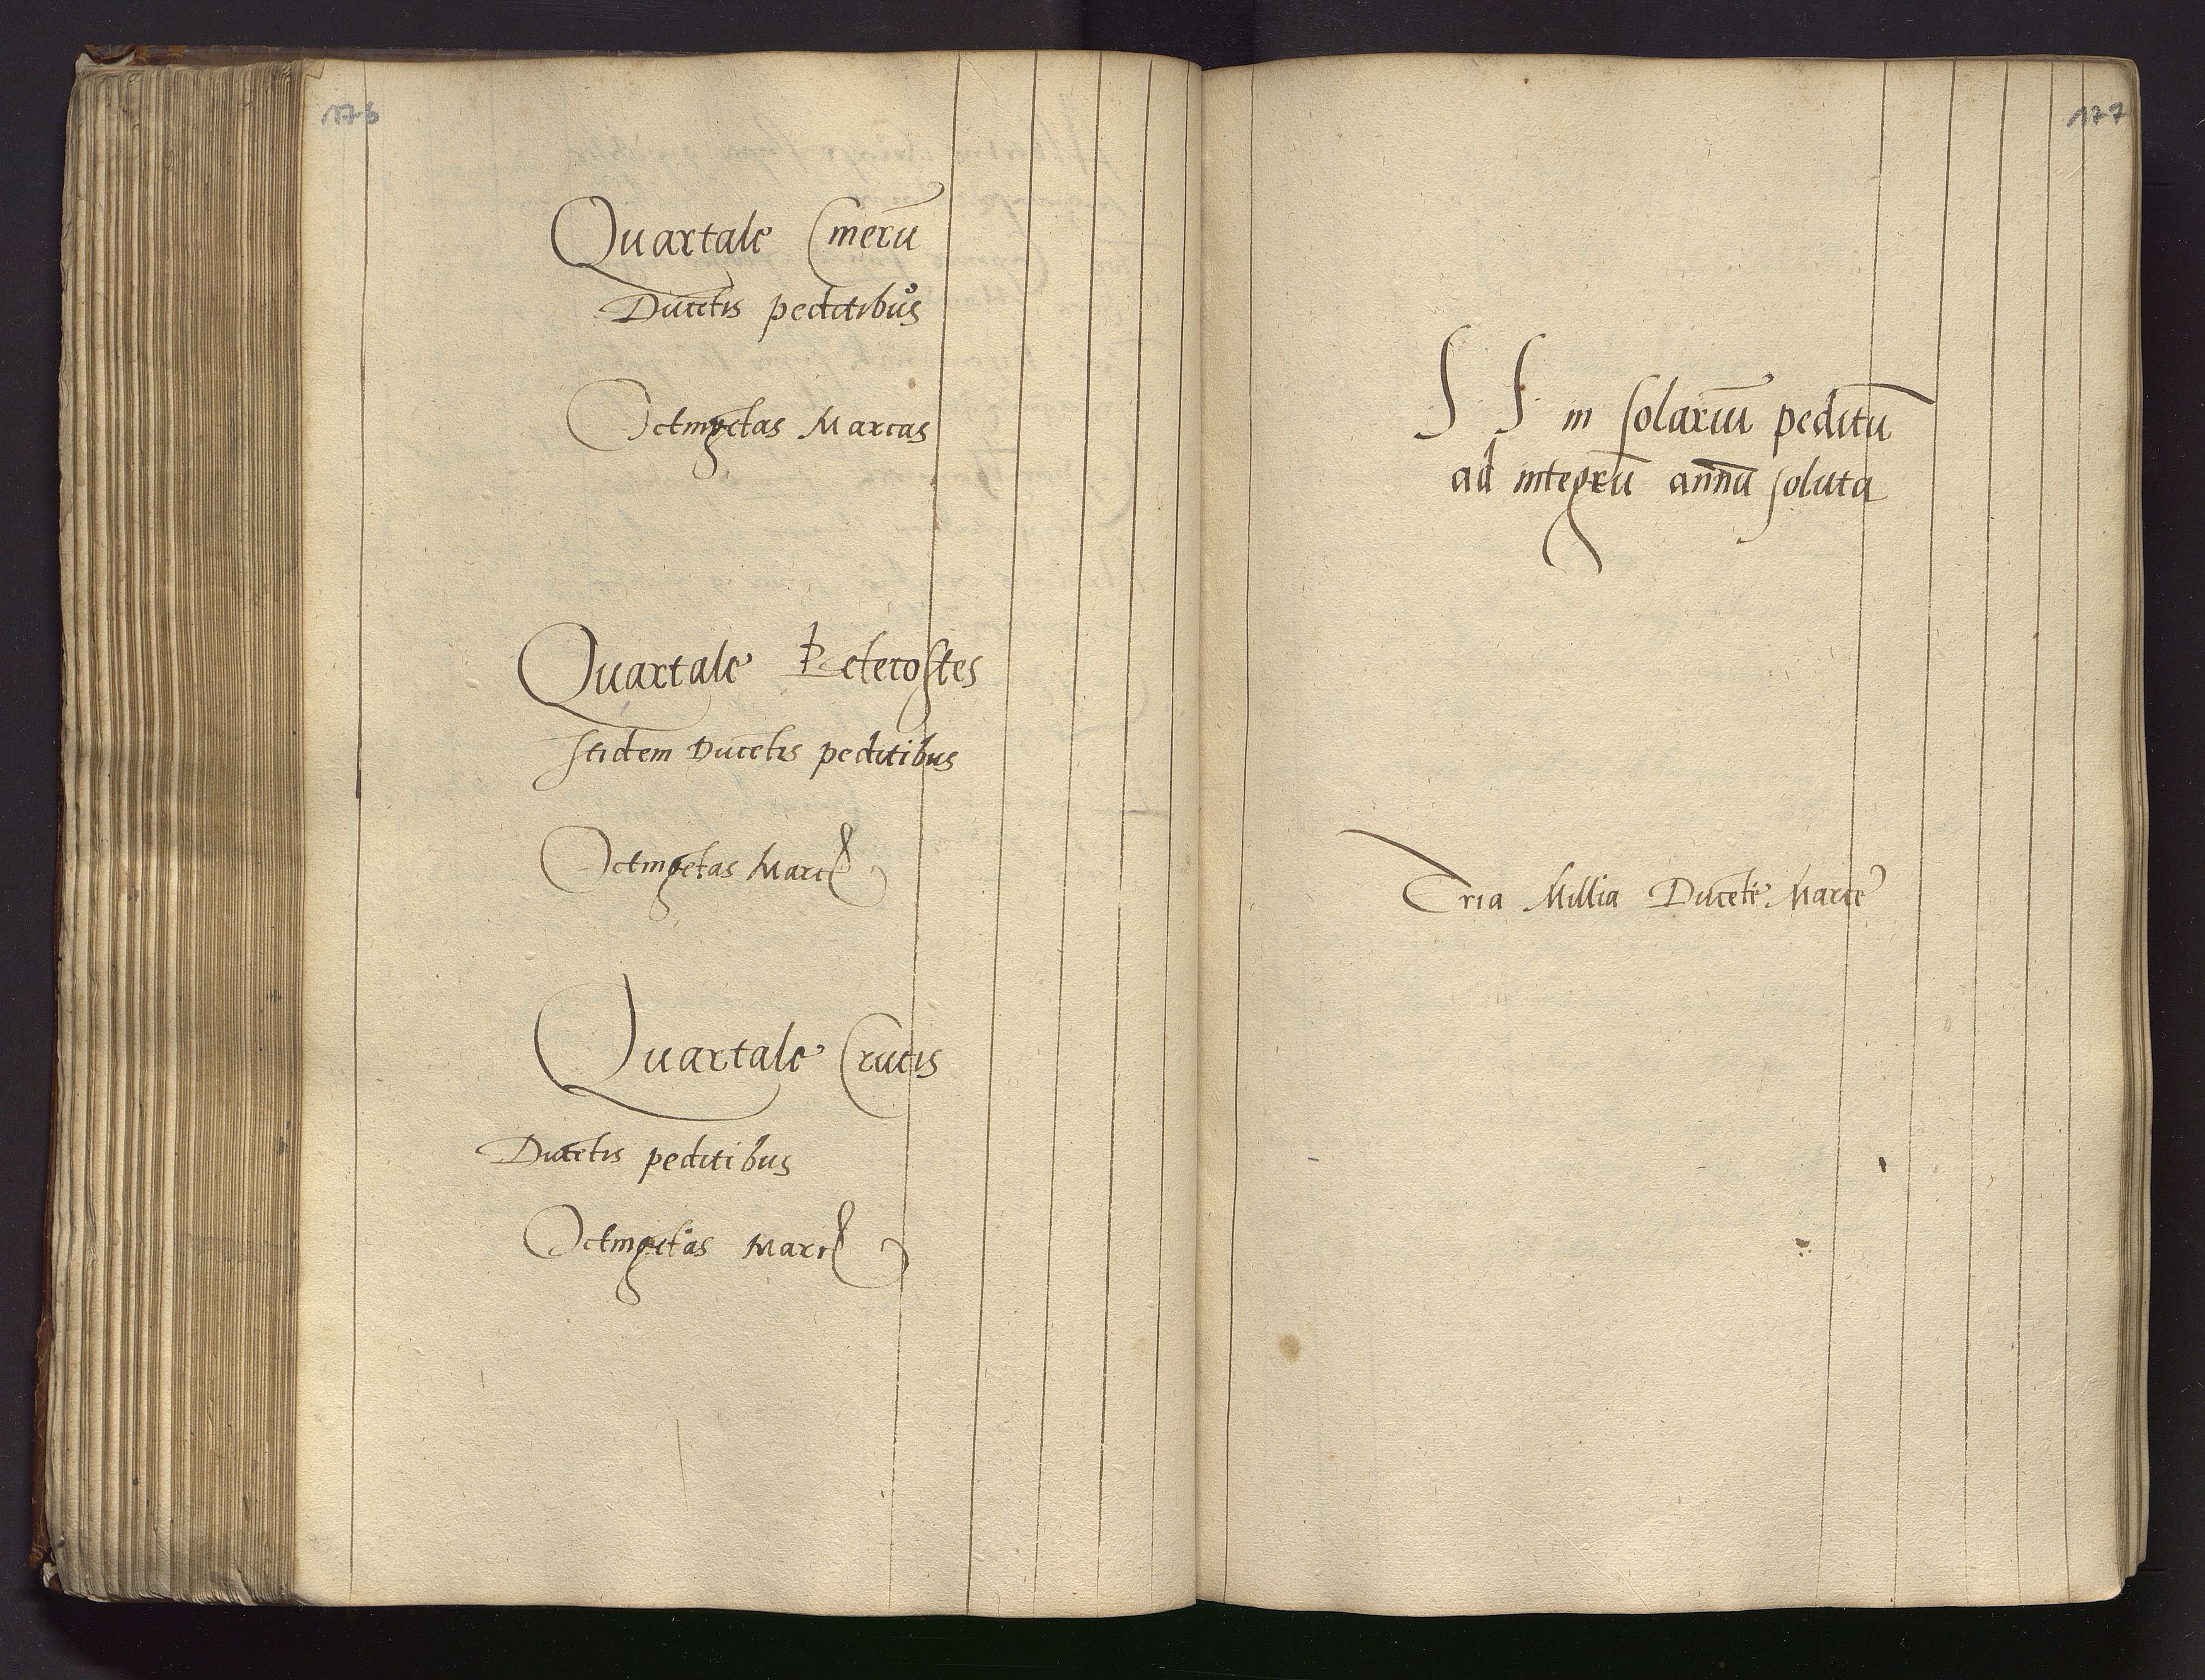 176
Quartale Cinerū
Ducētis peditibus
Octingētas Marcas
Quartale Petecostes
Itidem Ducētis peditibus
Octingētas Marc
Quartale Crucis
Ducētis peditibus
Octingētas Marc
177
S S in solariū peditū
ad integrū annū soluta
Tria Millia Ducēte Marce